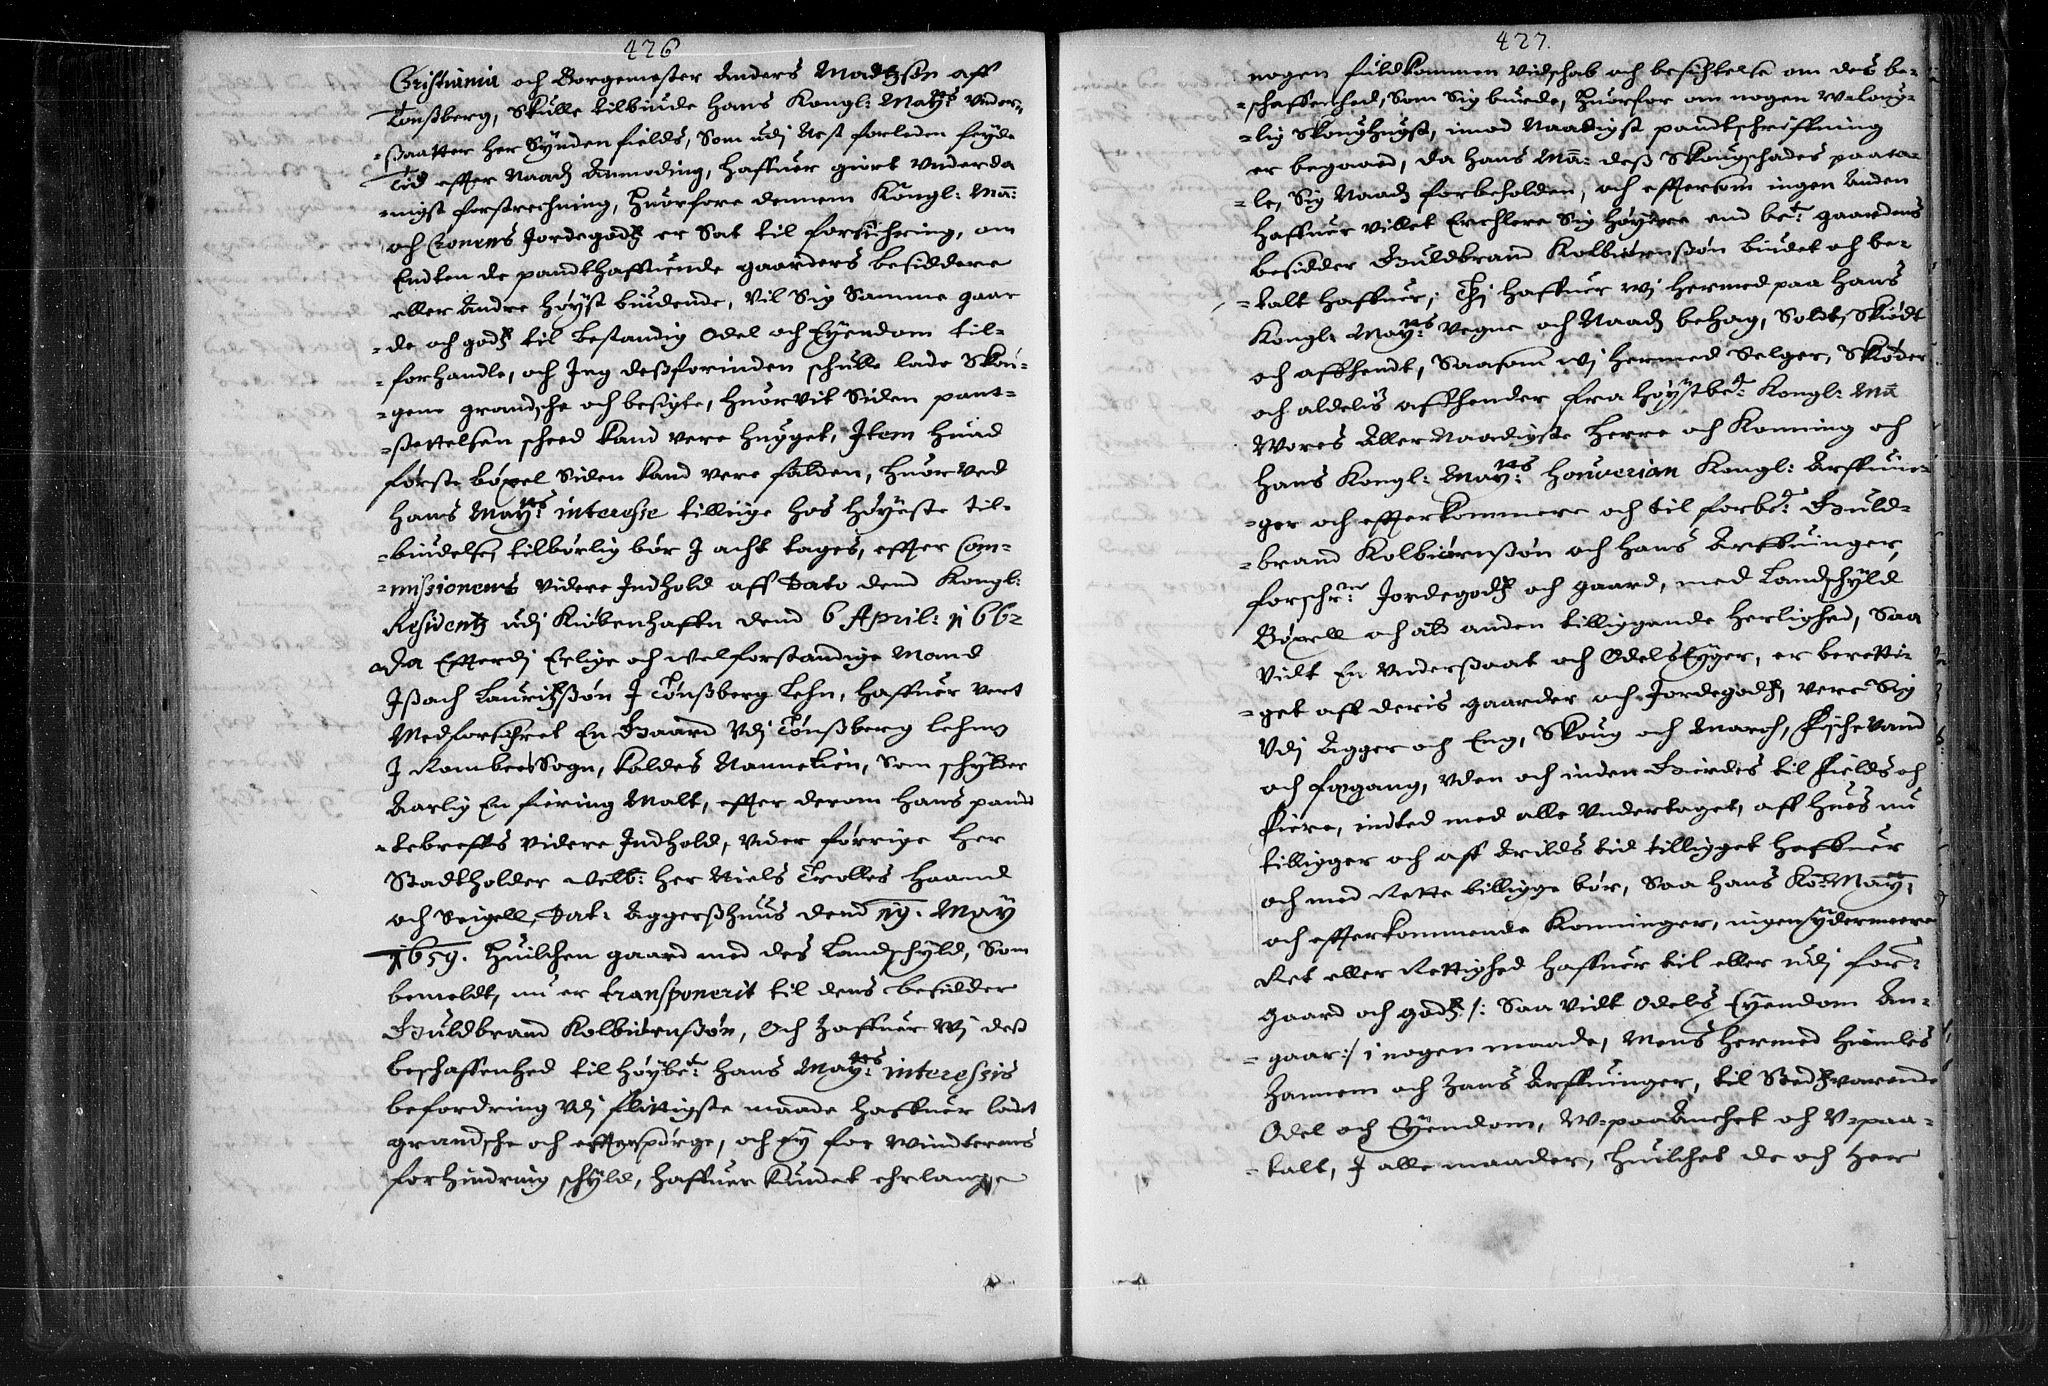 426
Cristiania och Borgemester Anders Madtzsøn aff
Tonsberg, Skulle tilbiude Hans Kongl: Mayts: Vnder-
-saatter Her Synden fields, Som udj Nest forleden feyde
Tid effter Naadz Anmoding, Haffuer giort Vnderda
-nigst forstrechning, Huorfore dennem Kongl: Ma:
och Cronens Jordegodz er Sat til forsichring, om
Endten de pandthaffuende gaarders besiddere
eller Andre Høyst biudende, Vil Sig Samme gaar
-de och godz til bestandig Odel och Eyendom til-
-forhandle, och Jeg desforinden schulle lade Skou-
-gene grandsche och besigte, Huorvit Siden pant-
-settelsen scheed kand vere hugget, Item Huad
første bøxel Siden kand vere falden, Huorved
Hans Mayts: interesse tillige hos Høyeste til-
-biudelse, tilbørlig bør J acht tages, effter Com-
-missionens videre Indhold aff Dato dend Kongl:
Residentz udj Kiøbenhaffn dend 6 April: 1662
Da Efterdj Erlige och Velforstandige Mand
Isach Lauritzsøn J Tønsberg Lehn, Haffuer vert
Medforschret En Gaard Vdj Tønsberg Lehn
J Rambes Sogn, kaldes Nannetien, Som schylder
Aarlig En fiering Malt, effter derom Hans pand
-tebreffs videre Indhold, Vnder forrige Her
Stadtholder Velb: Her Niels Trolles Haand
och Seigell, Dat: Aggershuus dend 19. May
1659. Huilchen gaard med des Landschyld, Som
bemeldt, nu er transponerit til dens besidder
Guldbrand Kolbiørnsøn, Och Haffuer Wj dess
beschaffenhed til Høybet: Hans Mayts: interessis
befordring Vdj flittigste maade Haffuer ladet
grandsche och efterspørge, och ey for Windterens
forhindring schyld, Haffuer Kundet erlange
427.
nogen fuldkommen Vidschab och besichtelse om des be-
-schaffenhed, Som Sig burde, Huorfor om nogen Wlouf-
-lig Skoughugst, imod Naadigst pandtschrifftning
er begaaed, da Hans Ma: dess Skougschades paata-
-le, Sig Naadz forbeholden, och effterson ingen Anden
Haffuer villet Erchlere Sig Høyere end bete: gaardens
besidder Guldbrand Kolbiørnsøn biudet och be-
-talt Haffuer, Thj Haffuer wj Hermed paa Hans
Kongl: Mayts: Vegne och Naadz behag, Soldt, Skiødt
och affhendt, Saasom wj Hermed Selger, Skøder
och aldelis affhender fra Høystbete: Kongl: Ma
Wores Aller Naadigste Herre och Konning och
Hans Kongl: Mayts: Souverian Kongl: Arffuin-
-ger och effterkommere och til forbete: Guld-
-brand Kolbiørnsøn och Hans Arffuinger,
forschrne: Jordegodz och gaard, med Landschyld
Bøxell och ald anden tilliggende Herlighed, Saa
vidt En Vndersaat och Odels Eyger, er beretti-
-get aff deris gaarder och Jordegodz, vere Sig
Vdj Agger och Eng, Skoug och March, fischevand
och foxgang, Vden och inden Gierdes til fields och
fiere, indted med alle Vndertaget, aff Hues nu
tilligger och aff Arilds tid tilligget Haffuer
och med Rette billigge bør, Saa Hans Ko: May:
och effterkommende Konninger, ingen ydermeere
Ret eller Rettighed Haffuer til eller udj for:
gaard och godz /: Saa vidt Odels Eyendom An-
-gaar:/ i nogen maade, Mens Hermed Himles
Hannem och Hans Arffuinger, til Stedzvarende
Odel och Eyendom, W-paaanchet och V-paa-
-talt, J alle maader, Huilchet de och Her